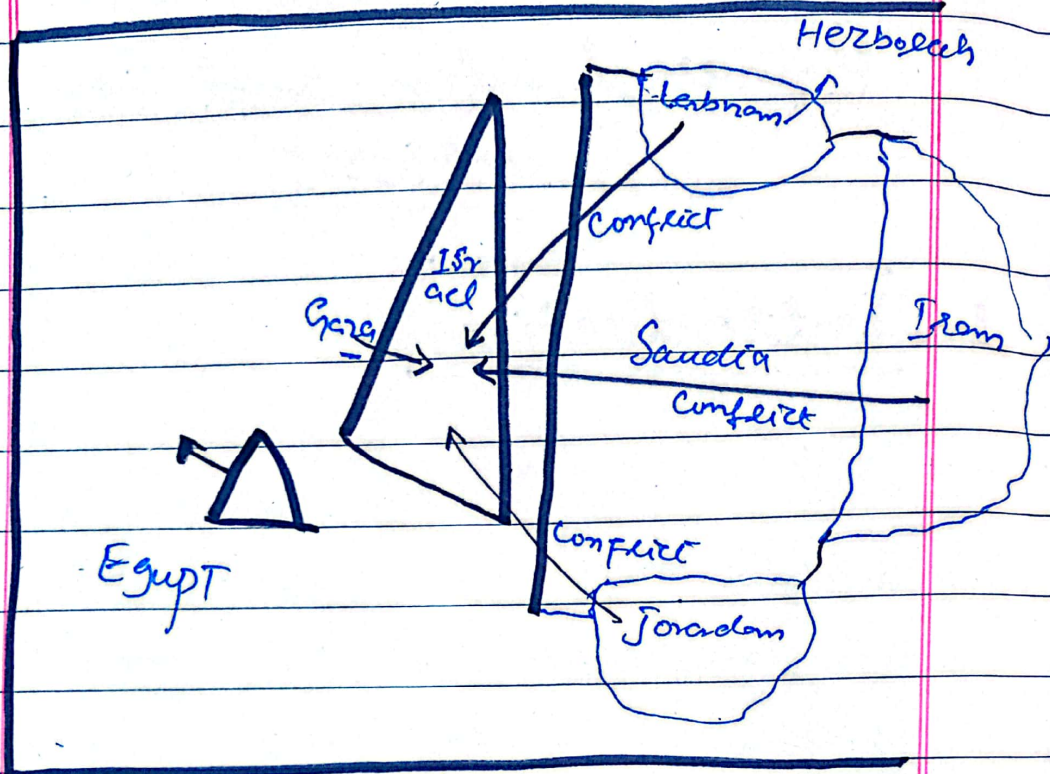 Herbolah
Lebnam
Conflict
Isr
ael
Gaza
Iran
Saudia
Conflict
Conflict
Egupt
Joradam